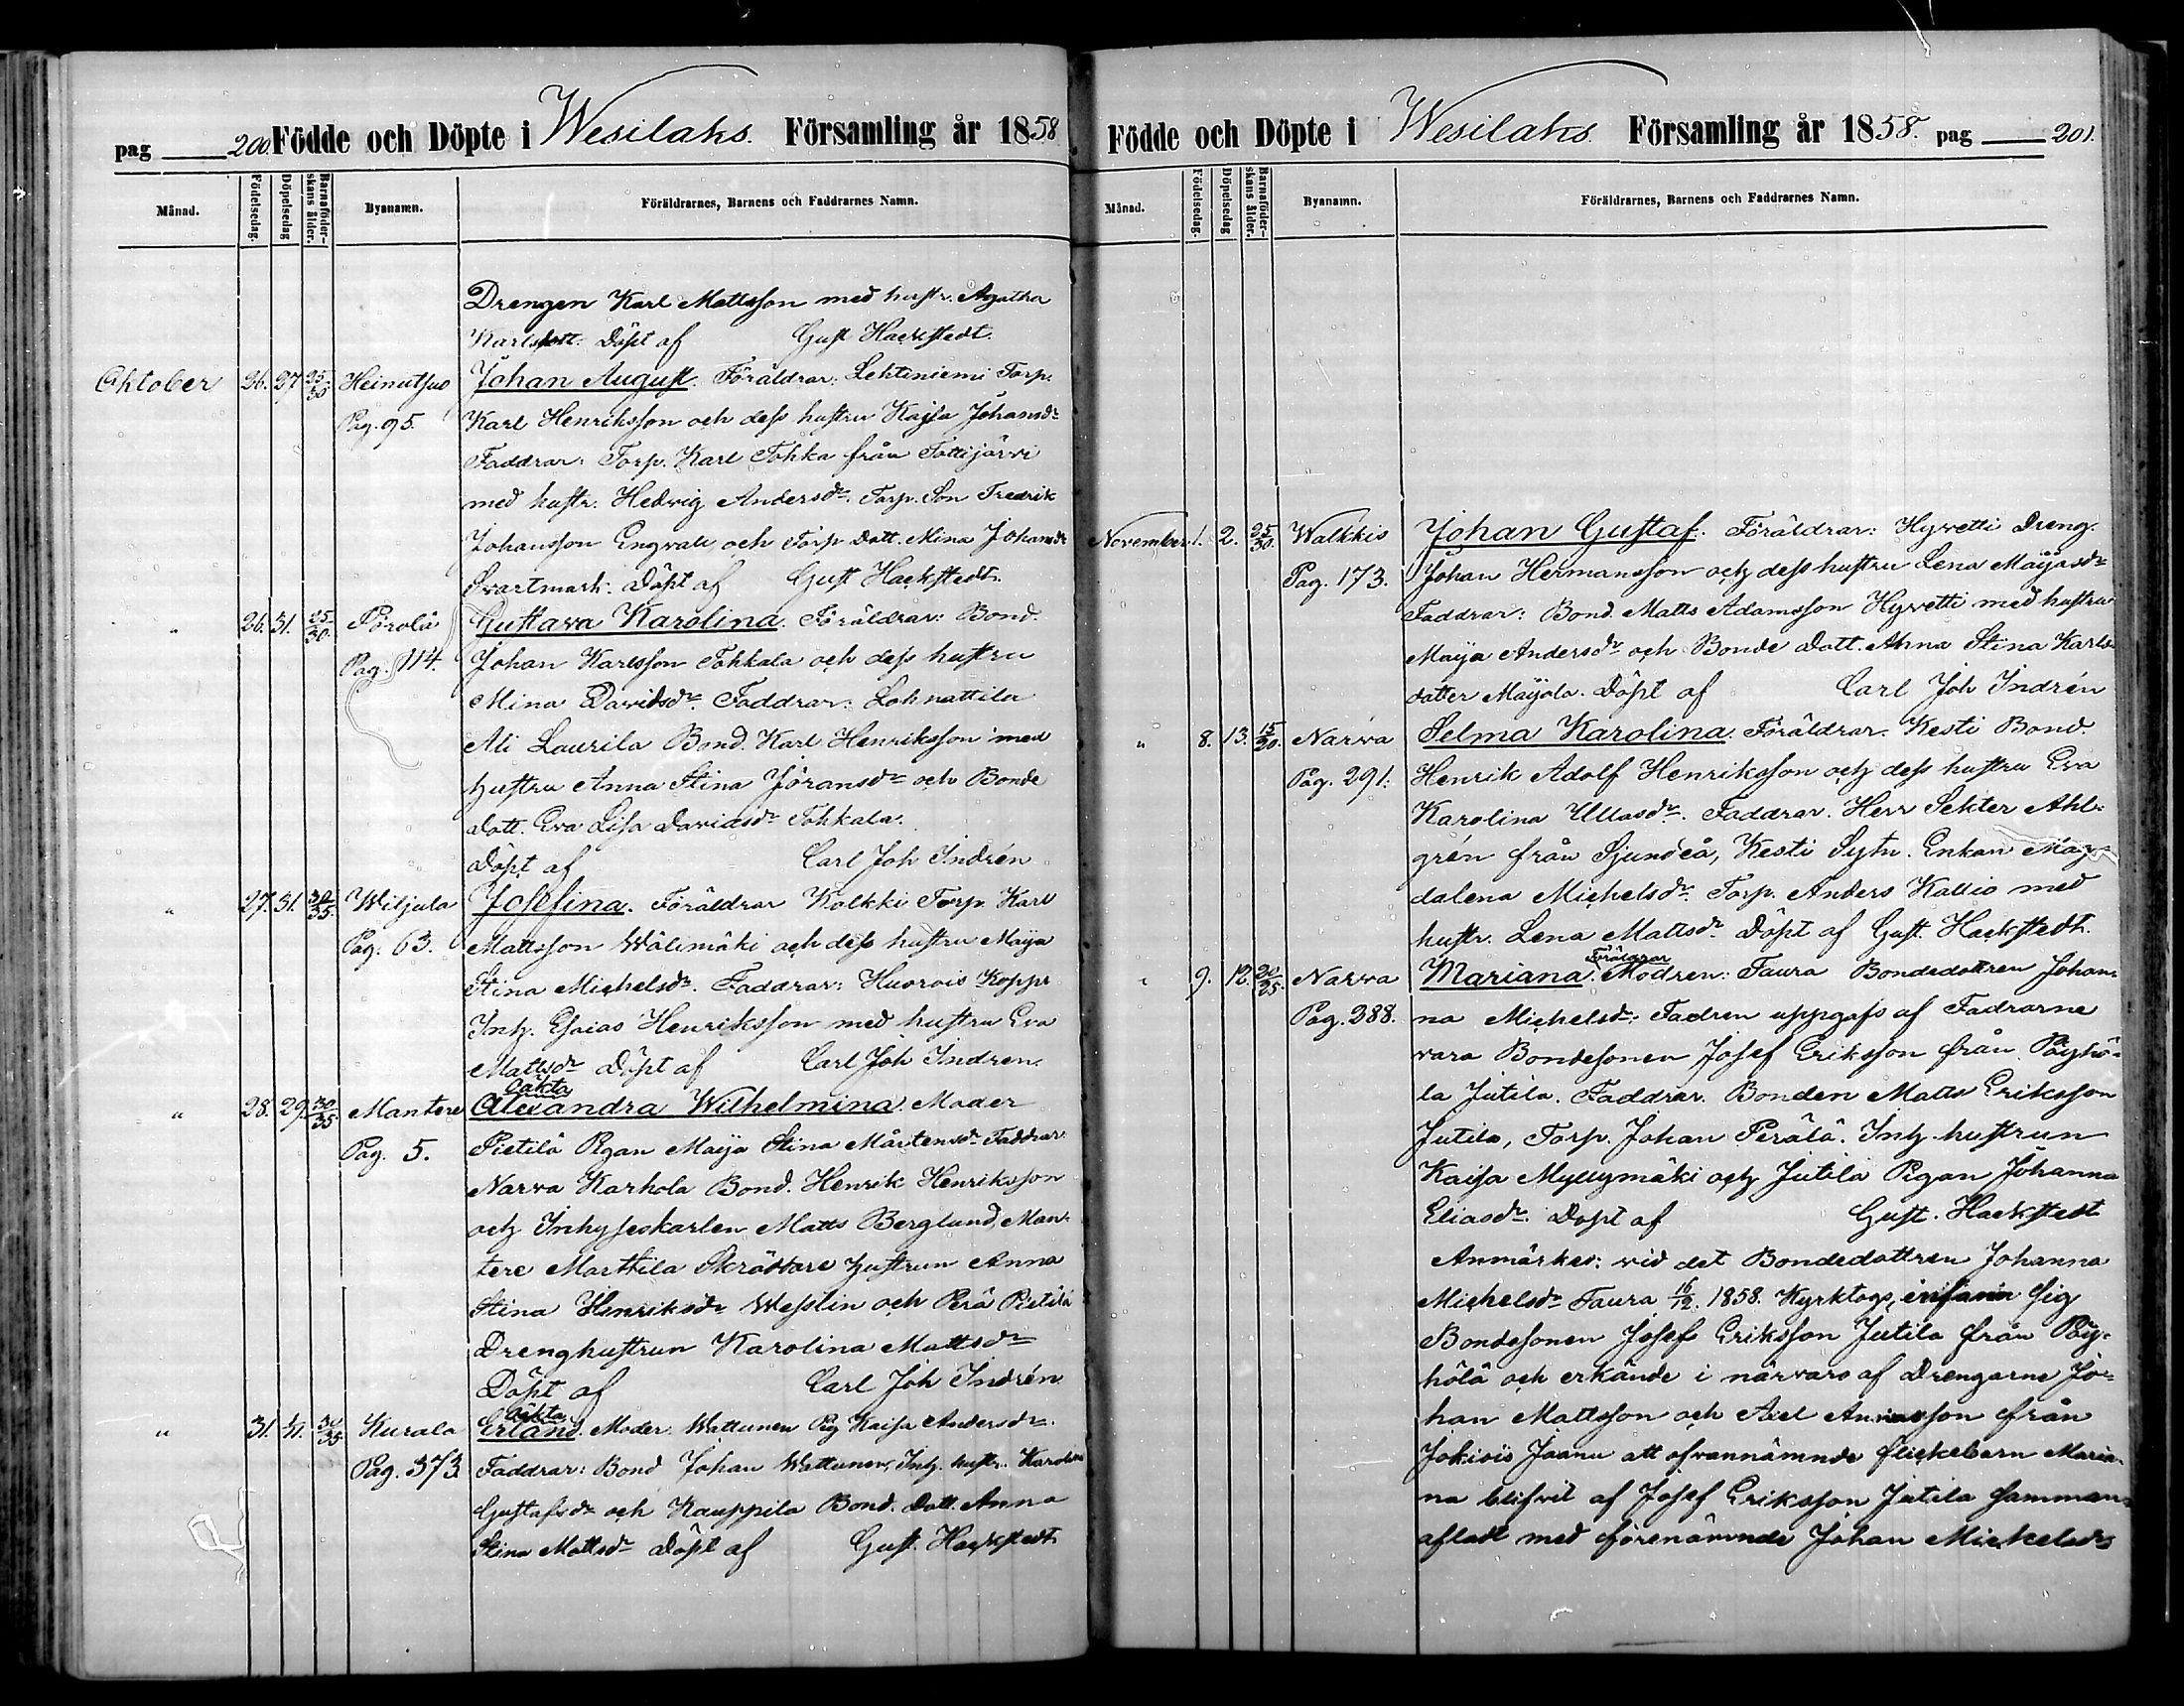 pag 200. Födde och Döpte i Wesilaks. Församling år 1858
Månad. Födelsedag. Döpelsedag Barnaföder-skans ålder. Byanamn. Föräldrarnes, Barnens och Faddrarnes Namn.
Drengen Karl Mattsson med hustr. Agatha
Karlsdott. Döpt af Gust Hackstedt.
Oktober 26. 27 25/30 Heinutsuo Johan August. Föräldrar: Lehtiniemi Torp.
Pag. 95. Karl Henriksson och dess hustru Kajsa Johansdr
Faddrar: Torp. Karl Tohka från Tottijärvi
med hustr. Hedwig Andersdr. Torp. Son Fredrik
Johansson Engvall och Torp Dott. Mina Johansdr
Svartmark. Döpt af Gust Hackstedt.
" 26. 31. 25/30. Pörölä Gustava Karolina. Föräldrar: Bond.
Pag. 114. Johan Karlsson Tohkala och dess hustru
Mina Davidsdr. Faddrar: Lohnattila
Ali Laurila Bond. Karl Henriksson med
hustru Anna Stina Jöransdr och Bonde
dott. Eva Lisa Davidsdr Tohkala.
Döpt af Carl Joh Indrén
" 27. 31. 30/35. Wiljula Josefina. Föräldrar Kolkki Torp. Karl
Pag. 63. Mattsson Wälimäki och dess hustru Maija
Stina Michelsdr. Faddrar: Huorois Koppi
Inh. Esaias Henriksson med hustru Eva
Mattsdr Döpt af Carl Joh Indrén.
oäkta
" 28. 29. 30/35 Mantere Alexandra Wilhelmina. Moder
Pag. 5. Pietilä Pigan Maija Stina Mårtensdr Faddrar
Narva Karhola Bond. Henrik Henriksson
och Inhyseskarlen Matts Berglund, Man-
tere Marttila Skräddare hustrun Anna
Stina Henriksdr Wesslin och Perä Pietilä
Drenghustrun Karolina Mattsdr
Döpt af Carl Joh Indrén.
oäkta
" 31. 1/11. 30/35. Kurala Erland. Moder: Wattunen Pig Kaisa Andersdr.
Pag. 373. Faddrar: Bond Johan Wattunen, Inh. hustr. Karolina
Gustafsdr och Kauppila Bond. Dott. Anna
Stina Mattsdr Döpt af Gust. Hackstedt
Födde och Döpte i Wesilaks. Församling år 1858. pag 201.
Månad. Födelsedag. Döpelsedag Barnaföder-skans ålder. Byanamn. Föräldrarnes, Barnens och Faddrarnes Namn.
November. 1. 2. 25/30. Walkkis Johan Gustaf. Föräldrar: Hyvetti Dreng.
Pag. 173. Johan Hermansson och dess hustru Lena Maijasdr
Faddrar: Bond. Matts Adamsson Hyvetti med hustru
Maija Andersdr och Bonde Dott. Anna Stina Karls-
dotter Maijala. Döpt af Carl Joh Indrén
" 8. 13. 15/30. Narva Selma Karolina. Föräldrar. Kesti Bond.
Pag. 291. Henrik Adolf Henriksson och dess hustru Eva
Karolina Ullasdr. Faddrar. Herr Sekter Ahl-
grén från Sjundeå, Kesti Sytn. Enkan Mag-
dalena Michelsdr. Torp. Anders Kallio med
hustr. Lena Mattsdr. Döpt af Gust. Hackstedt.
Föräldrar
" 9. 12. 20/25. Narva Mariana. Modren: Taura Bondedottren Johan-
Pag. 288. na Michelsdr: Fadren uppgafs af Fadrarne
vara Bondesonen Josef Eriksson från Päyhö-
lä Jutila. Faddrar. Bonden Matts Eriksson
Jutila, Torp. Johan Perälä. Inh. hustrun
Kaisa Myllymäki och Jutila Pigan Johanna
Eliasdr. Döpt af Gust. Hackstedt
Anmärkes: vid det Bondedottren Johanna
Michelsdr Taura 16/12. 1858. Kyrktogs, infann sig
Bondesonen Josef Eriksson Jutila från Päy-
hölä och erkände i närvaro af Drengarne Jo-
han Mattsson och Axel från
Jokiois Jaanu att ofvannämnde flickebarn Maria-
na blifvit af Josef Eriksson Jutila samman-
aflad med förenämnde Johan Michelsdr